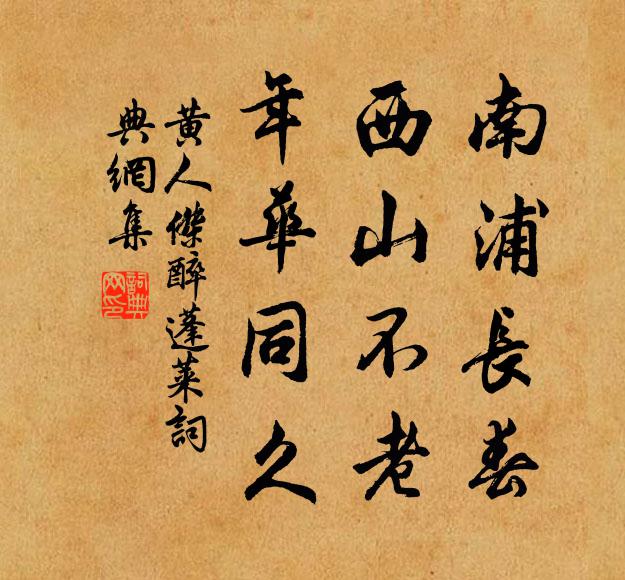 南浦長春
西山不老
年華同久
黄人傑醉蓬萊詞
典網集
詞典網印